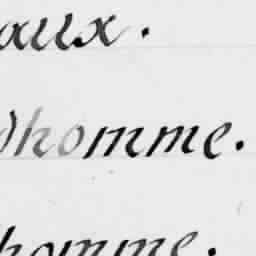 aux.
dhomme.
homme.